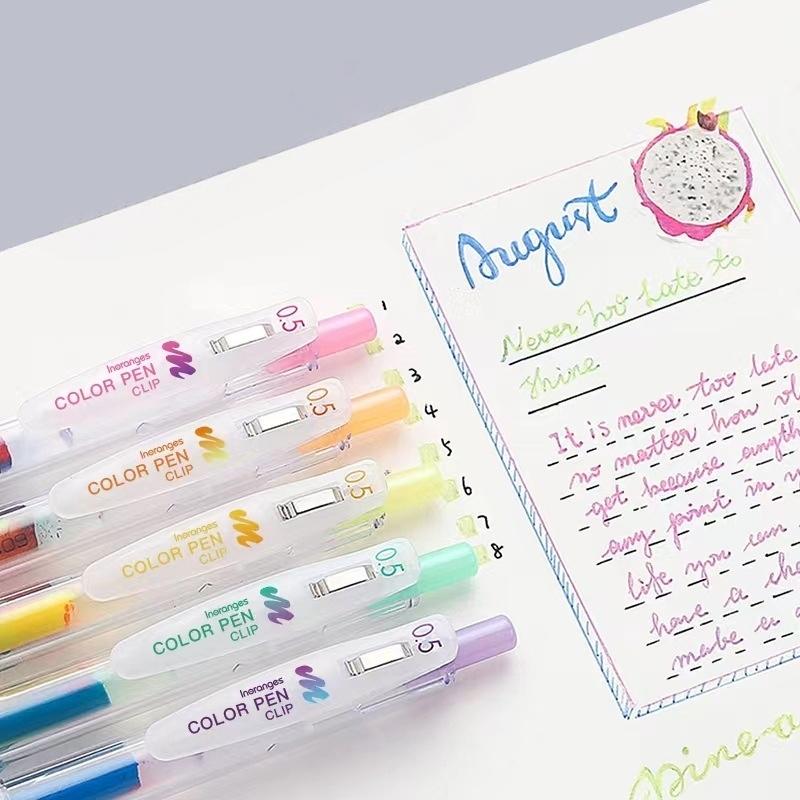 August
Never Too Late to
Shine
It is never too late
no matter how ol
get because anyth
any point in
life you can
have a cha
make a
Dine-a
1
2
3
4
5
6
7
8
0.5
Inoranges
COLOR PEN
CLIP
0.5
Inoranges
COLOR PEN
CLIP
0.5
Inoranges
COLOR PEN
CLIP
0.5
Inoranges
COLOR PEN
CLIP
0.5
Inoranges
COLOR PEN
CLIP